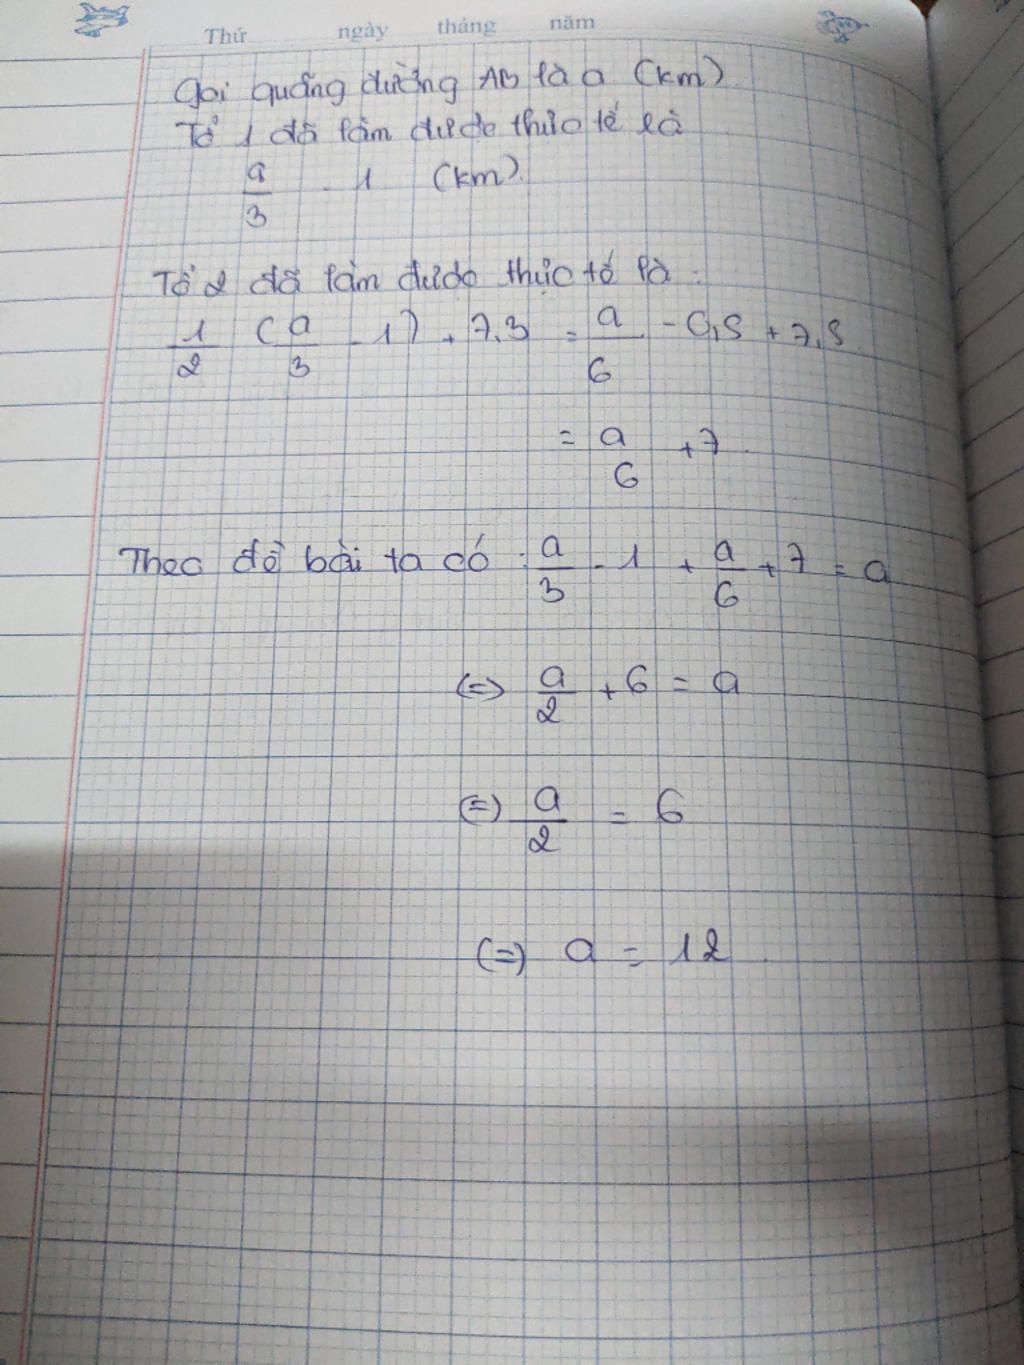 Thứ ngày tháng năm
Gọi quãng đường AB là a (km)
Tổ 1 đã làm được thực tế là
a/3 - 1 (km).
Tổ 2 đã làm được thực tế là :
1/2 (a/3 - 1) + 7.3 = a/6 - 0,5 + 7,5
= a/6 + 7.
Theo đề bài ta có : a/3 - 1 + a/6 + 7 = a
(=) a/2 + 6 = a
(=) a/2 = 6
(=) a = 12.